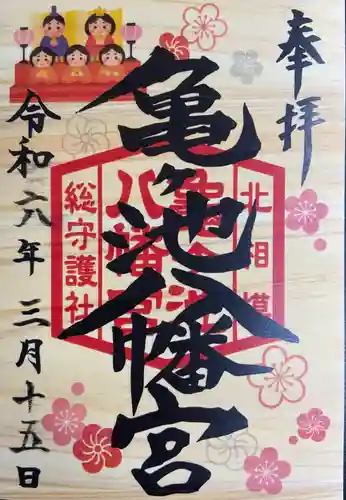 奉拝
亀ヶ池八幡宮
北相模
亀ヶ池
八幡宮
総守護社
令和六年三月十五日